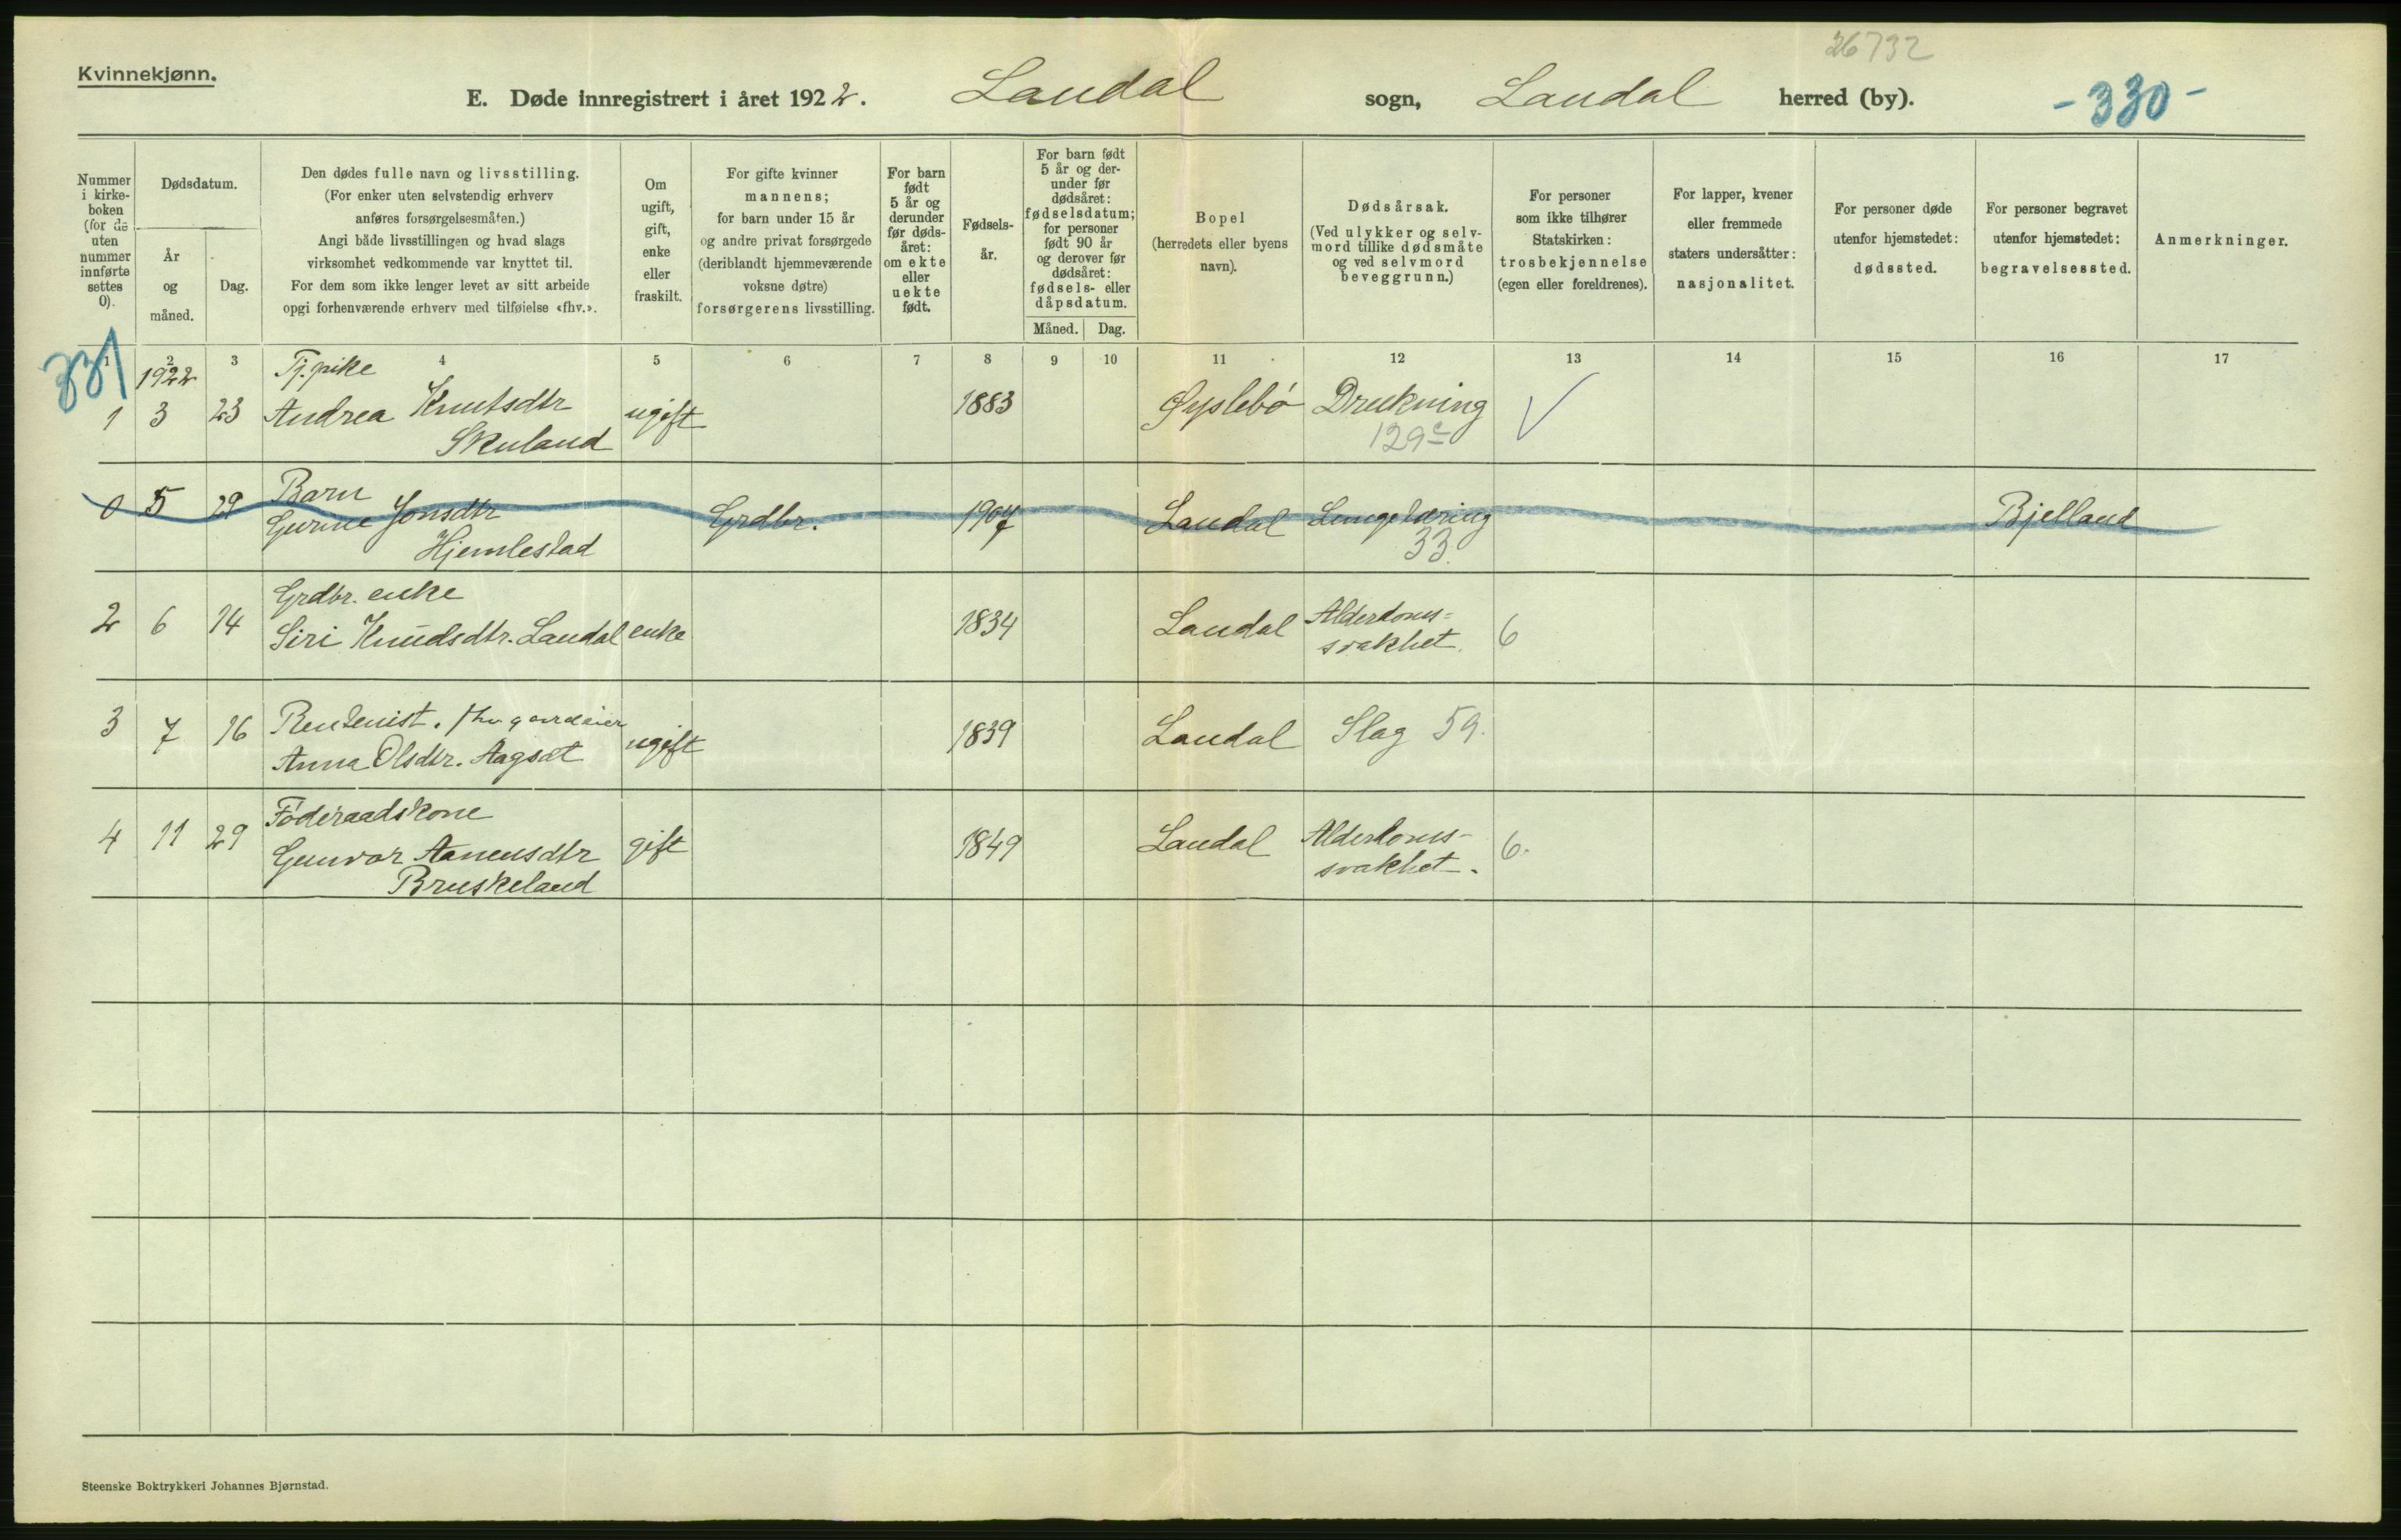 26732
Kvinnekjønn.
E. Døde innregistrert i året 1922. Laudal sogn, Laudal herred (by). -330-
Nummer i kirke-boken (for de uten nummer innførte settes 0).
Dødsdatum.
År og måned.
Dag.
Den dødes fulle navn og livsstilling.
(For enker uten selvstendig erhverv
anføres forsørgelsesmåten.)
Angi både livsstillingen og hvad slags
virksomhet vedkommende var knyttet til.
For dem som ikke lenger levet av sitt arbeide
opgi forhenværende erhverv med tilføielse «fhv.».
Om
ugift,
gift,
enke
eller
fraskilt.
For gifte kvinner
mannens;
for barn under 15 år
og andre privat forsørgede
(deriblandt hjemmeværende
voksne døtre)
forsørgerens livsstilling.
For barn
født
5 år og
derunder
før døds-
året:
om ekte
eller
uekte
født.
Fødsels-
år.
For barn født
5 år og der-
under før
dødsåret:
fødselsdatum;
for personer
født 90 år
og derover før
dødsåret:
fødsels- eller
dåpsdatum.
Måned. Dag.
Bopel
(herredets eller byens
navn).
Dødsårsak.
(Ved ulykker og selv-
mord tillike dødsmåte
og ved selvmord
beveggrunn.)
For personer
som ikke tilhører
Statskirken:
trosbekjennelse
(egen eller foreldrenes).
For lapper, kvener
eller fremmede
staters undersåtter:
nasjonalitet.
For personer døde
utenfor hjemstedet:
dødssted.
For personer begravet
utenfor hjemstedet:
begravelsessted.
Anmerkninger.
1 2 3 4 5 6 7 8 9 10 11 12 13 14 15 16 17
331
1922 Tj. pike
1 3 23 Andrea Knutsdtr ugift 1883 Øyslebø Drukning
Skuland 129c
Barn
0 5 29 Gurine Jonsdtr Grdbr. 1907 Laudal Lungetæring Bjelland
Hjemlestad 33.
Grdbr. enke
2 6 14 Siri Knudsdtr. Laudal enke 1834 Laudal Alderdoms-
svakhet. 6
3 7 16 Rentenist. fhv gaardeier
Anna Olsdtr. Aagsæt ugift 1839 Laudal Slag 59.
Føderaadskone
4 11 29 Gunvor Aanensdtr gift 1849 Laudal Alderdoms-
Bruskeland svakhet. 6.
Steenske Boktrykkeri Johannes Bjørnstad.